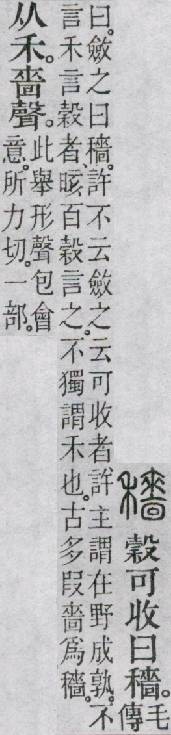 穡 穀可收曰穡。毛
傳
曰。斂之曰穡。許不云斂之。云可收者。許主謂在野成孰。不
言禾言穀者、晐百穀言之。不獨謂禾也。古多叚嗇爲穡。
从禾。嗇聲。此舉形聲包會
意。所力切。一部。